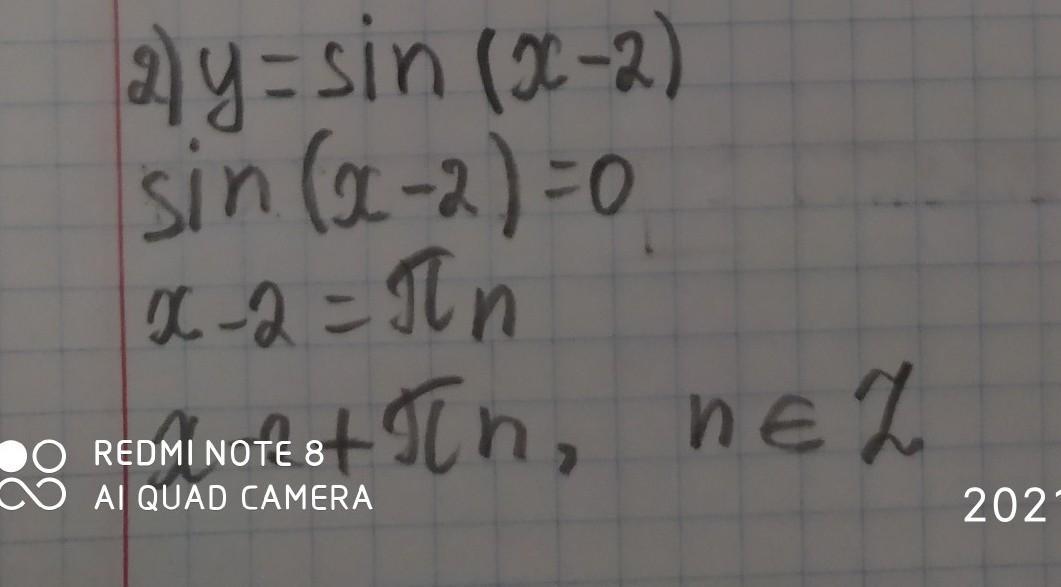 2) y = sin (x - 2)
sin (x - 2) = 0
x - 2 = πn
+ πn, n ∈ Z
REDMI NOTE 8
AI QUAD CAMERA